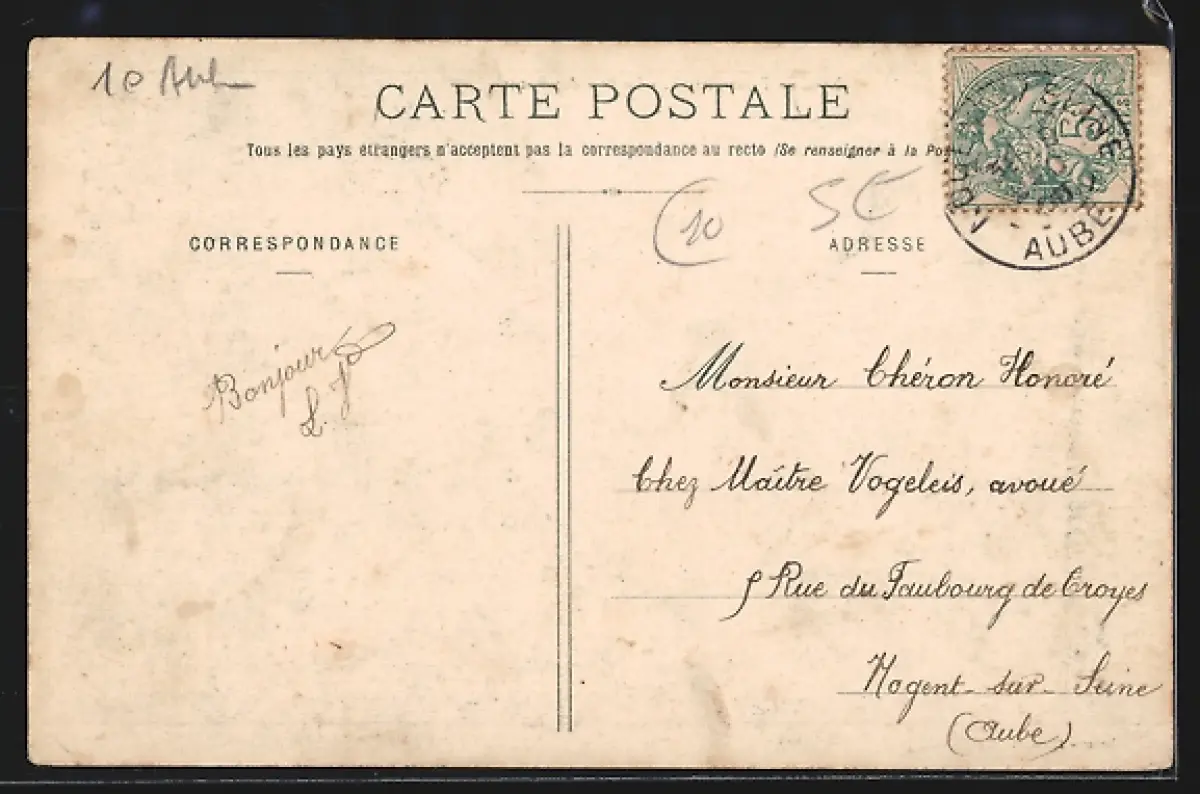 10 Aube
CARTE POSTALE
Tous les pays étrangers n'acceptent pas la correspondance au recto (Se renseigner à la Pos
10
5€
CORRESPONDANCE
ADRESSE
AUBE
Bonjour
L. J.
Monsieur Chéron Honoré
Chez Maître Vogeleis, avoué
5 Rue du Faubourg de Troyes
Nogent-sur-Seine
(Aube)